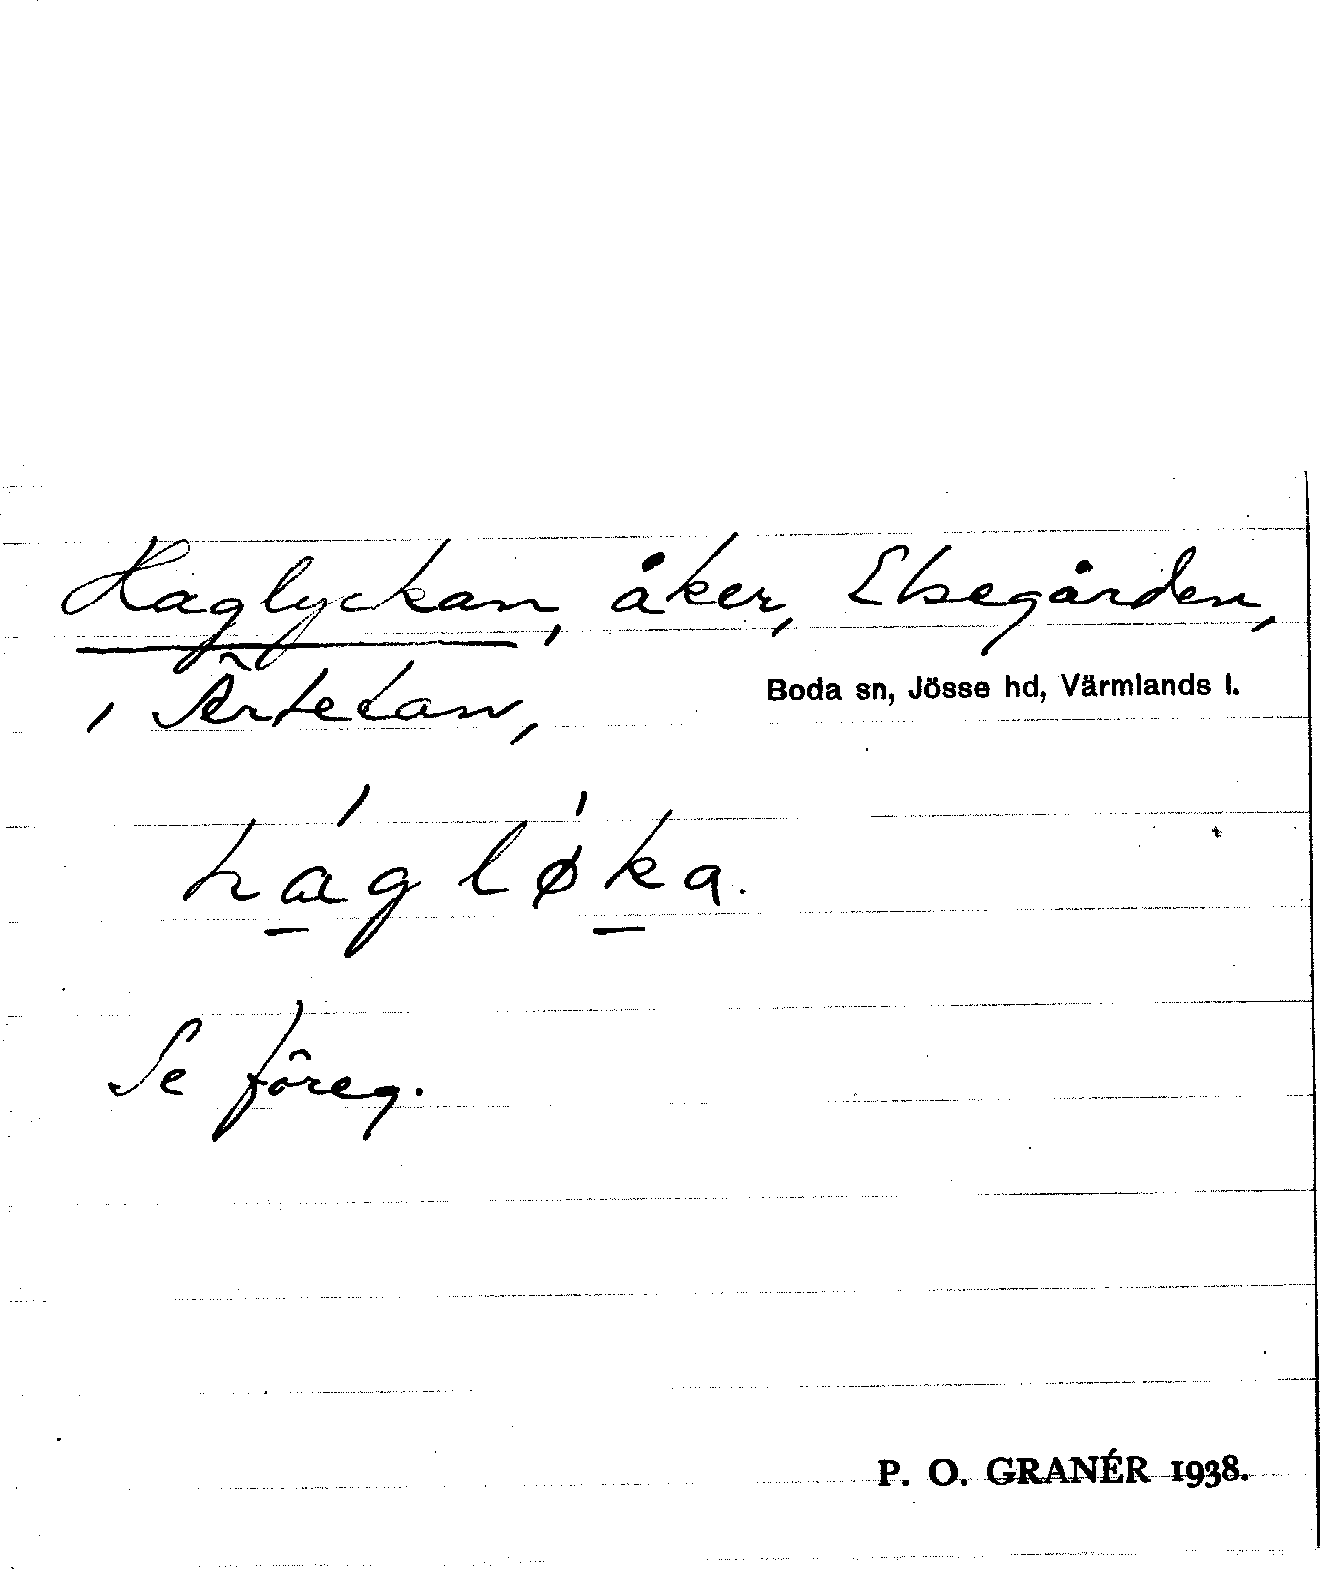 Haglyckan, åker, Elsegården,
i Ärtetan,
Boda sn, Jösse hd, Värmlands l.
há̱gløḵa.
Se föreg.
P. O. GRANÉR 1938.